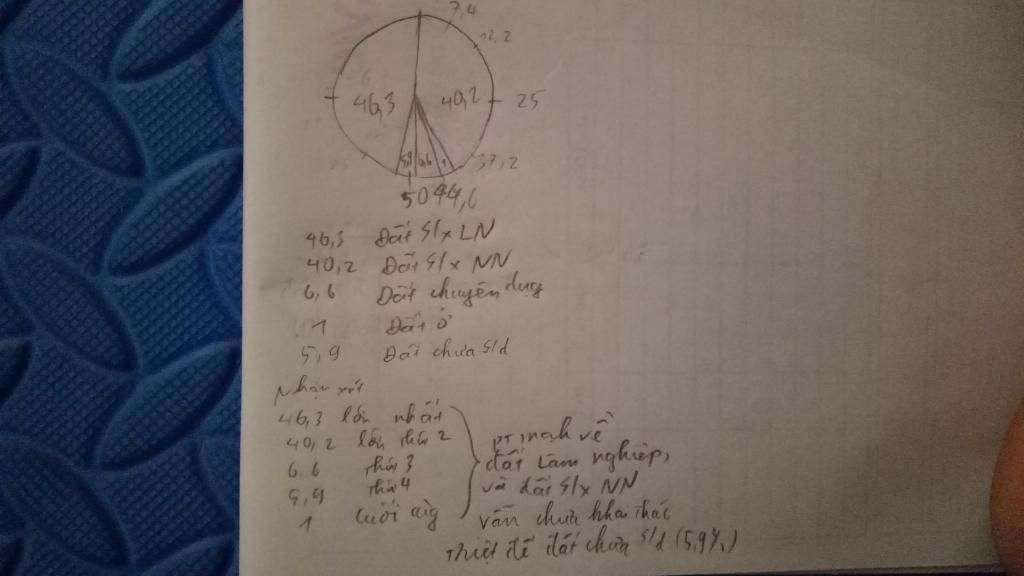 7,4
12,2
46,3 40,2 25
5,9 6,6 1 37,2
50 44,6
46,3 Đất s/x LN
40,2 Đất s/x NN
6,6 Đất chuyên dụg
1 Đất ở
5,9 Đất chưa s/d
Nhận xét
46,3 lớn nhất
40,2 lớn thứ 2
6.6 thứ 3
5,9 thứ 4
1 cuối cùg
PT mạnh về
đất Lâm nghiệp,
và đất s/x NN
vẫn chưa khai thác
triệt để đất chưa s/d (5,9%)